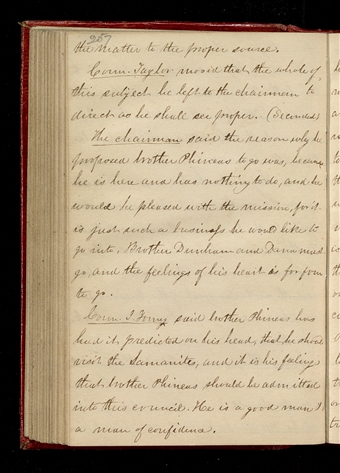 257
the matter to the proper source.
Coun. Taylor mov'd that the whole of
this subject be left to the chairman to
direct as he shall see proper. (Seconded)
The chairman said the reason why he
proposed brother Phineas to go was, because
he is here and has nothing to do, and he
would be pleased with the mission, for it
is just such a business he would like to
go into. Brother Dunham and Dana must
go, and the feelings of his heart is for four
to go.
Coun. J. Young said brother Phineas has
had it predicted on his head, that he should
visit the Lamanites, and it is his feeling
that brother Phineas should be admitted
into this council. He is a good man &
a man of confidence.